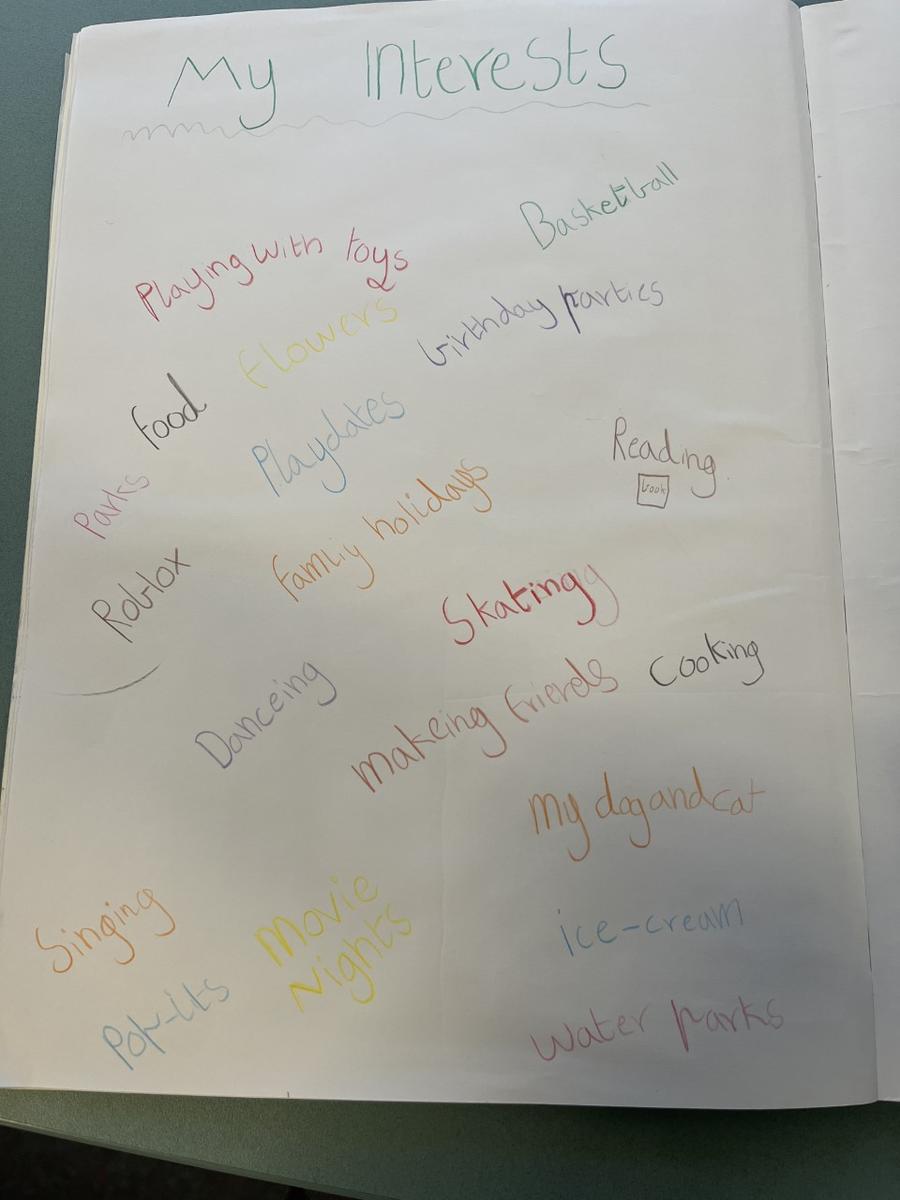 My Interests
Basketball
Playing with toys
flowers
birthday parties
food
Playdates
Reading
book
Parks
famliy holidays
Roblox
Skatingg
Danceing
makeing friends
cooking
my dog and cat
Singing
Movie
Nights
ice-cream
Pop-its
water parks